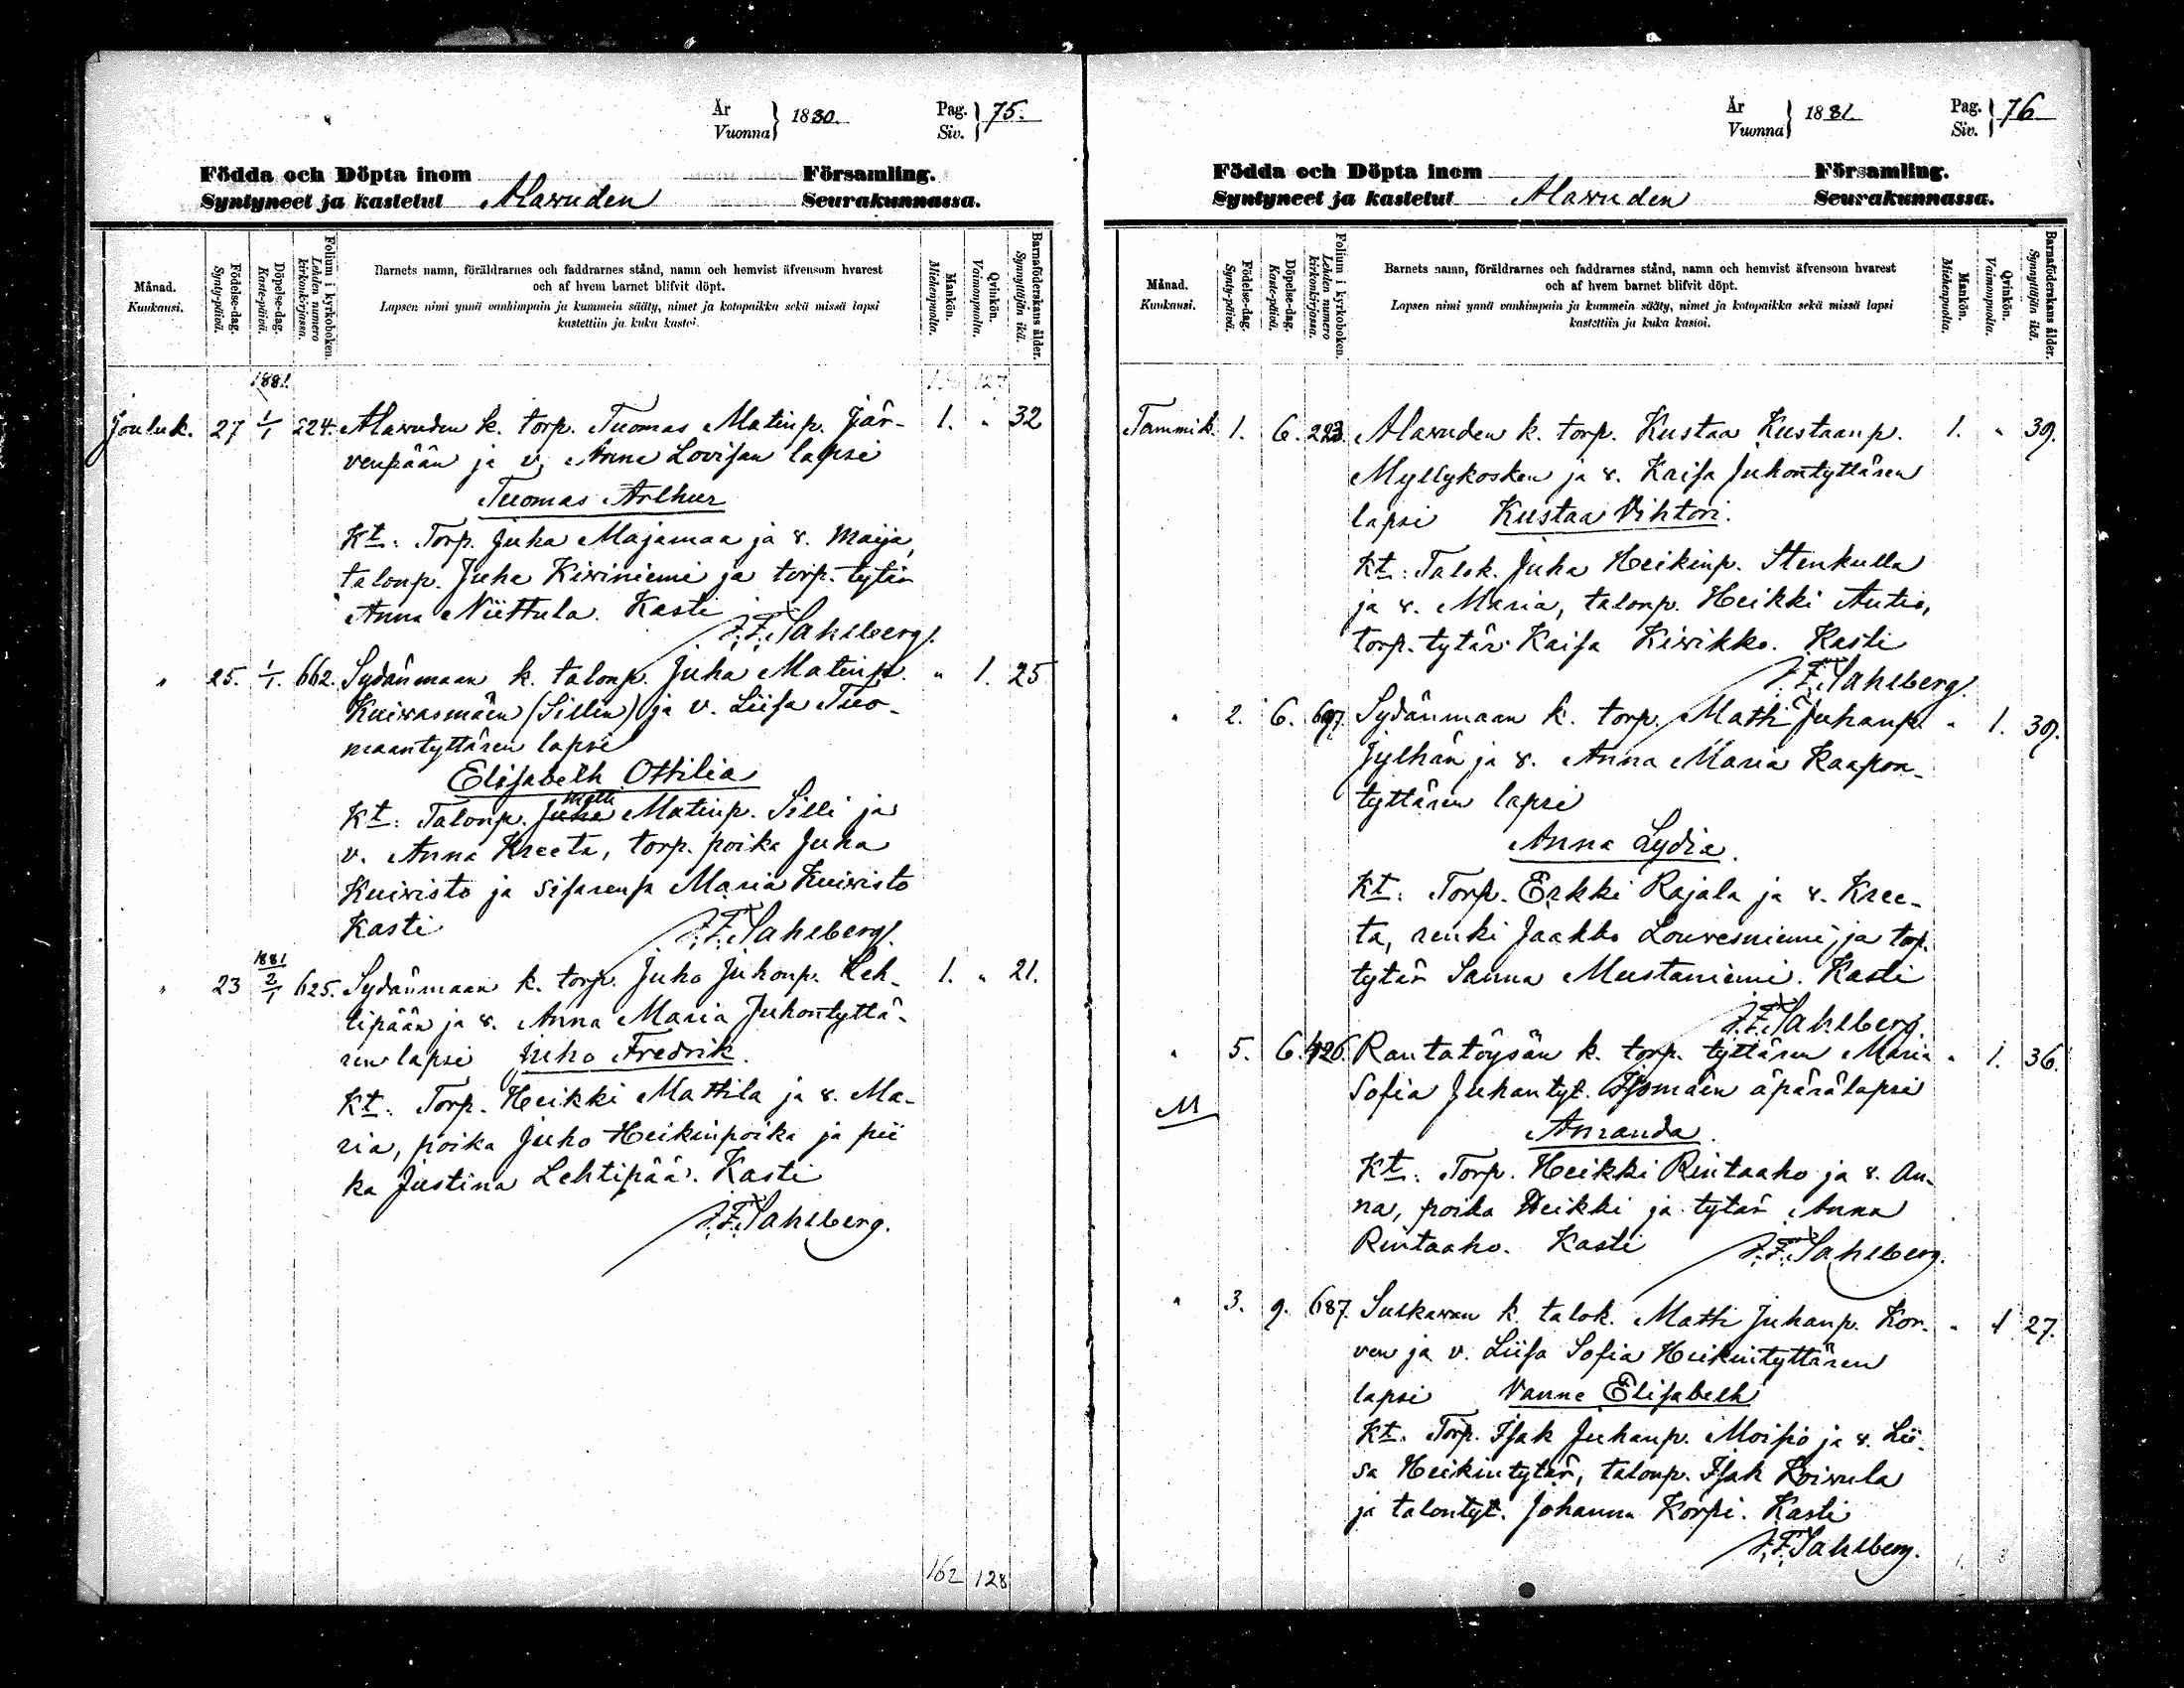 År
Vuonna } 1880. Pag.
Siv. } 75.
Födda och Döpta inom Församling.
Syntyneet ja kastetut Alavuden Seurakunnassa.
Månad.
Kuukausi.
Födelse-dag.
Synty-päivä.
Döpelse-dag.
Kaste-päivä.
Folium i kyrkoboken.
Lehden numero
kirkonkirjassa.
Barnets namn, föräldrarnes och faddrarnes stånd, namn och hemvist äfvensom hvarest
och af hvem barnet blifvit döpt.
Lapsen nimi ynnä vanhimpain ja kummein sääty, nimet ja kotopaikka sekä missä lapsi
kastettiin ja kuka kastoi.
Mankön.
Miehenpuolta.
Qvinkön.
Vaimonpuolta.
Barnaföderskans ålder.
Synnyttäjän ikä.
1881. 127
Jouluk. 27 1/1 224. Alavuden k. torp. Tuomas Matinp. Jär- 1. " 32
venpään ja v. Anna Lovisan lapsi
Tuomas Arthur
Kt: Torp. Juha Majamaa ja v. Maija,
talonp. Juha Kiviniemi ja torp. tytär
Anna Niittula. Kasti
J.F. Sahlberg.
" 25. 1/1. 662. Sydänmaan k. talonp. Juha Matinp. " 1. 25
Kuivasmäen (Sillin) ja v. Liisa Tuo-
maantyttären lapsi
Elisabeth Ottilia
Matti
Kt: Talonp. Juha Matinp. Silli ja
v. Anna Kreeta, torp. poika Juha
Kuivisto ja sisarensa Maria Kuivisto
Kasti J.F. Sahlberg.
1881
" 23 2/1 625. Sydänmaan k. torp. Juho Juhonp. Leh- 1. " 21.
tipään ja v. Anna Maria Juhontyttä-
ren lapsi Juho Fredrik.
Kt: Torp. Heikki Mattila ja v. Ma-
ria, poika Juho Heikinpoika ja pii
ka Justina Lehtipää. Kasti
J.F. Sahlberg.
162 128
År
Vuonna } 1881. Pag.
Siv. } 76
Födda och Döpta inom Församling.
Syntyneet ja kastetut Alavuden Seurakunnassa.
Månad.
Kuukausi.
Födelse-dag.
Synty-päivä.
Döpelse-dag.
Kaste-päivä.
Folium i kyrkoboken.
Lehden numero
kirkonkirjassa.
Barnets namn, föräldrarnes och faddrarnes stånd, namn och hemvist äfvensom hvarest
och af hvem barnet blifvit döpt.
Lapsen nimi ynnä vanhimpain ja kummein sääty, nimet ja kotopaikka sekä missä lapsi
kastettiin ja kuka kastoi.
Mankön.
Miehenpuolta.
Qvinkön.
Vaimonpuolta.
Barnaföderskans ålder.
Synnyttäjän ikä.
Tammik. 1. 6. 223. Alavuden k. torp. Kustaa Kustaanp. 1. " 39.
Myllykosken ja v. Kaisa Juhontyttären
lapsi Kustaa Vihtori.
Kt: Talok. Juha Heikinp. Stenkulla
ja v. Maria, talonp. Heikki Autio,
torp. tytär Kaisa Kivikko. Kasti
J.F. Sahlberg.
" 2. 6. 697. Sydänmaan k. torp. Matti Juhanp. " 1. 39.
Jylhän ja v. Anna Maria Kaapon-
tyttären lapsi
Anna Lydia.
Kt: Torp. Erkki Rajala ja v. Kree-
ta, renki Jaakko Louvesniemi ja torp.
tytär Sanna Mustaniemi. Kasti
J.F. Sahlberg.
" 5. 6. 426. Rantatöysän k. torp. tyttären Maria " 1. 36.
Sofia Juhantyt. Isomäen äpärälapsi
M
Amanda.
Kt: Torp. Heikki Rintaaho ja v. An-
na, poika Heikki ja tytär Anna
Rintaaho. Kasti J.F. Sahlberg.
" 3. 9. 687. Sulkavan k. talok. Matti Juhanp. Kor- " 1 27.
ven ja v. Liisa Sofia Heikintyttären
lapsi Sanna Elisabeth
Kt. Torp. Isak Juhanp. Moisio ja v. Lii-
sa Heikintytär, talonp. Isak Koivula
ja talontyt. Johanna Korpi. Kasti
J.F. Sahlberg.